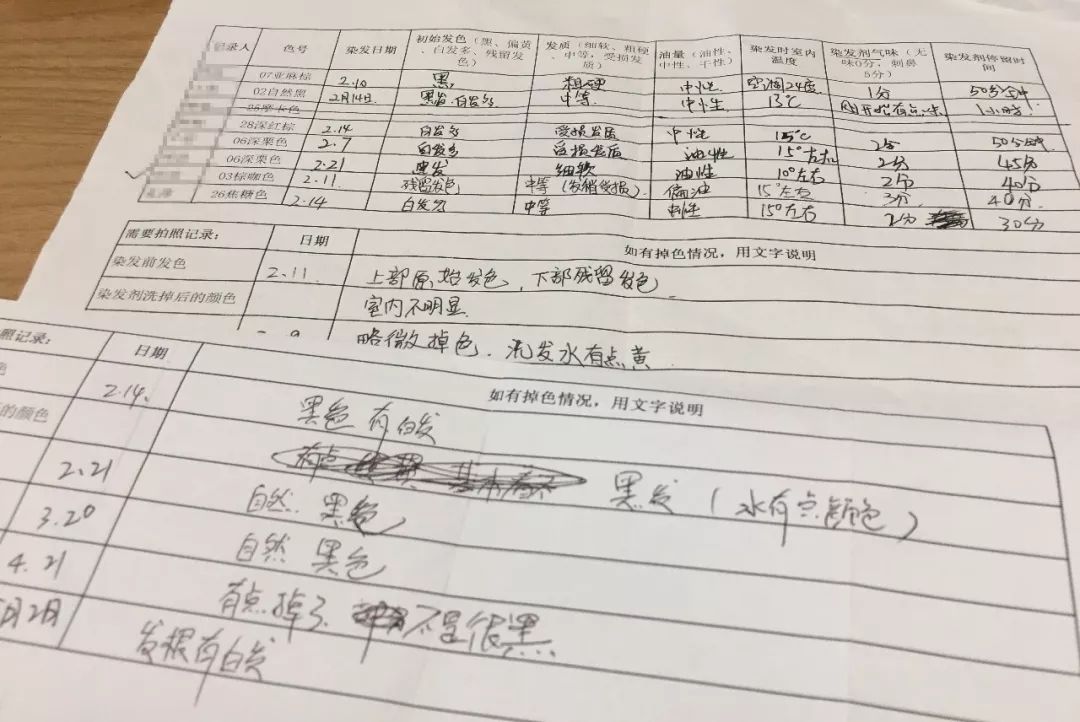 记录人 色号 染发日期 初始发色（黑、偏黄、白发多、残留发色） 发质（细软、粗硬、中等，受损发质） 油量（油性、中性、干性） 染发时室内温度 染发剂气味（无味0分，刺鼻5分） 染发剂停留时间
07亚麻棕 2.10 黑, 粗硬 中性 空调24度 1分 50分钟
02自然黑 2月14日. 黑发.白发多 中等. 中性 13℃ 刚开始有点味 1小时
28深红棕 2.14 白发多 受损发质 中性 15℃ 2分 50分钟
06深栗色 2.7 白发多 受损发质 油性 15°左右 2分 45分
06深栗色 2.21 黑发 细软 油性 10°左右 2分 40分
03棕咖色 2.11 残留发色 中等（发梢受损） 偏油 15°左右 3分 40分.
26焦糖色 2.14 白发多 中等 中性 15°左右 2分 30分
需要拍照记录： 日期 如有掉色情况，用文字说明
染发前发色 2.11 上部原始发色，下部残留发色
染发剂洗掉后的颜色 室内不明显
略微掉色.洗发水有点黄
照记录： 日期 如有掉色情况，用文字说明
色 2.14. 黑色 有白发
的颜色 有点 黑发（水有点颜色）
2.21 自然.黑色
3.20 自然 黑色
4.21 有点掉了 不是很黑
月2月 发根有白发